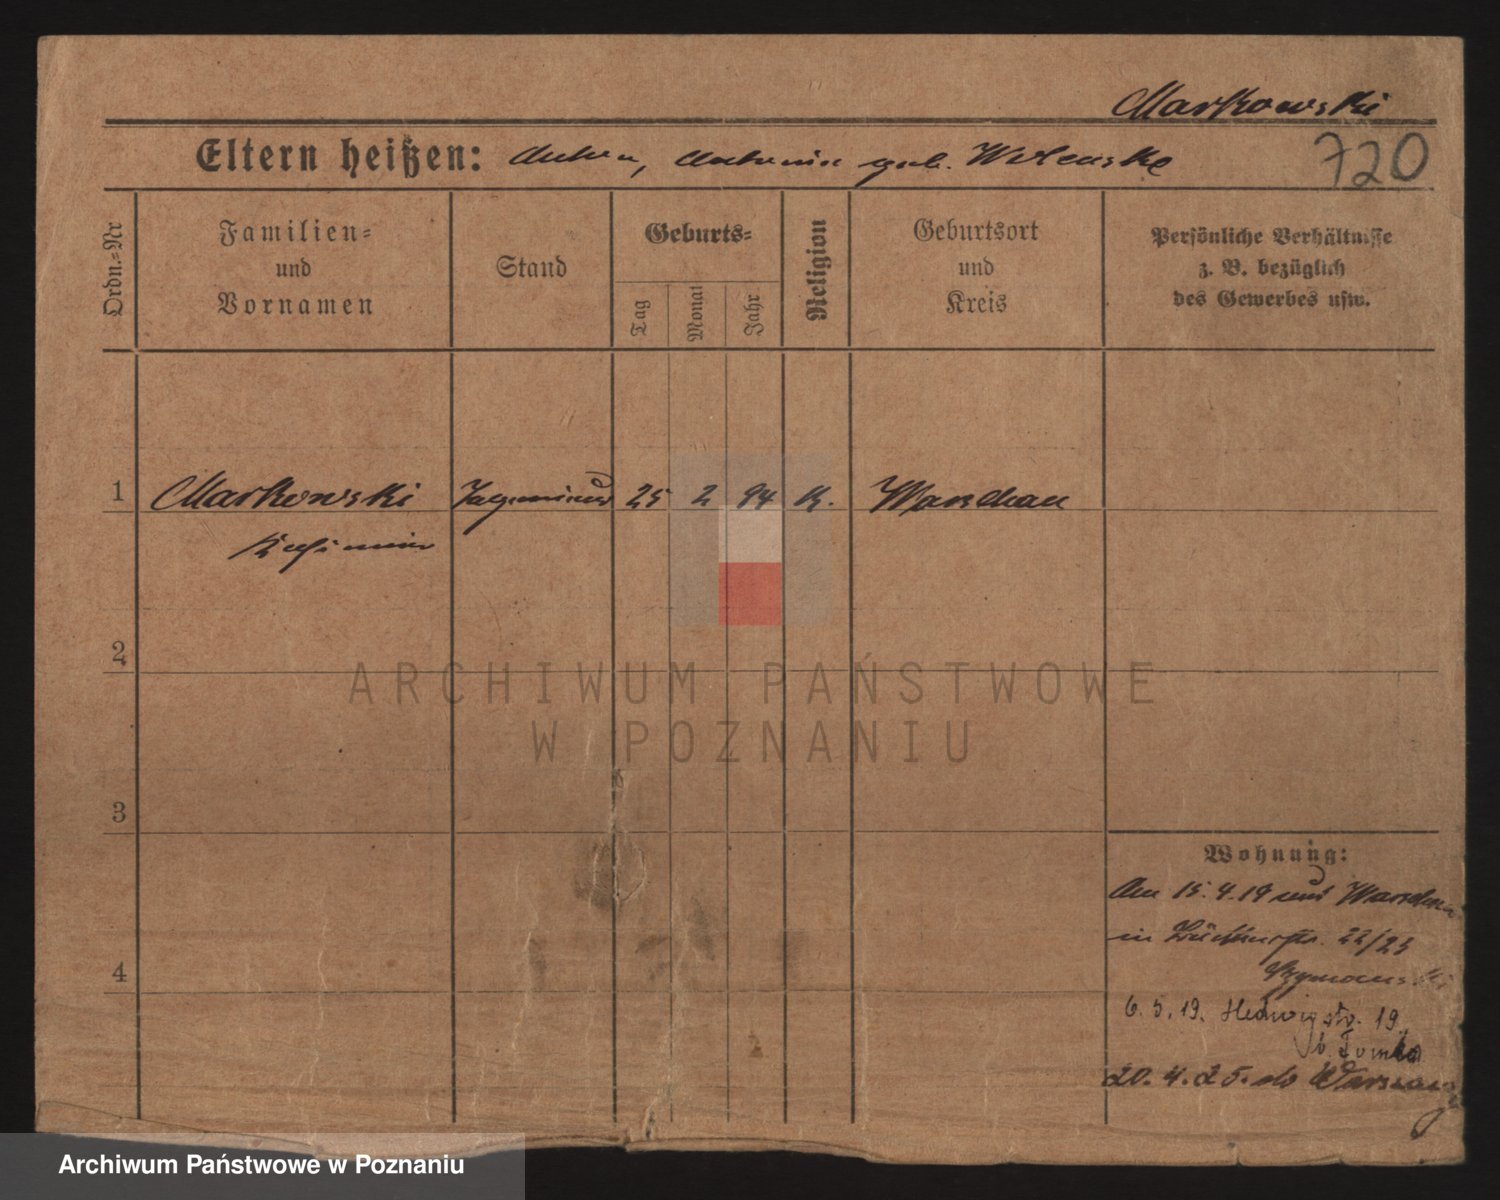 Markowski
Eltern heißen: Anton, Antonina geb. 720
Ordn.-Nr
Familien-
und
Vornamen
Stand
Geburts-
Tag
Monat
Jahr
Religion
Geburtsort
und
Kreis
Persönliche Verhältnisse
z. B. bezüglich
des Gewerbes usw.
1 Markowski Ingenieur 25 2 94 K. Warschau
Kasimir
2
ARCHIWUM PAŃSTWOWE
W POZNANIU
3
Wohnung:
Am 15. 4. 19 aus Warschau
in 22/23
4
Szymanski
6. 5. 19. Hedwigstr. 19
b. Tomka
20. 4. 25. do Warszawy
Archiwum Państwowe w Poznaniu